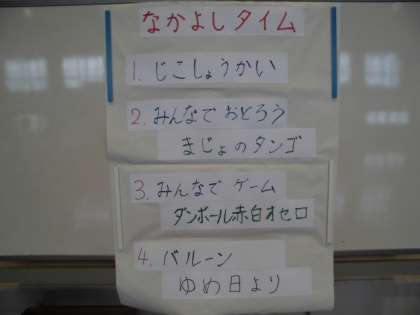 なかよしタイム
1. じこしょうかい
2. みんなで おどろう
まじょのタンゴ
3. みんなで ゲーム
ダンボール赤白オセロ
4. バルーン
ゆめ日より